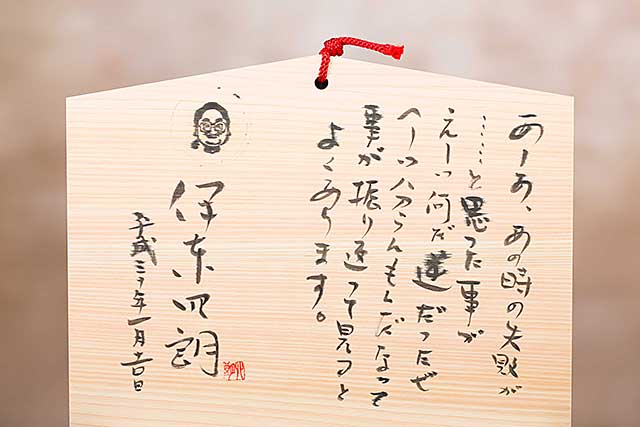 あーあ、あの時の失敗が
……と思った事が
えーっ何だ運だったぜ
へーッ分らんもんだなって
事が振り返って見ると
よくあります。
伊東四朗
平成三十年一月吉日